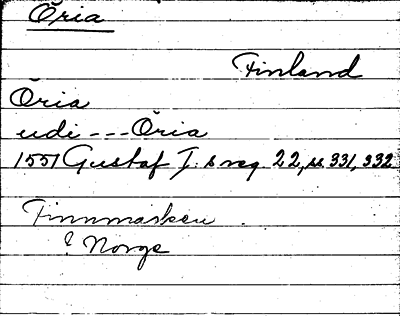 Öria
Finland
Öria
udi --- Öria
1551 Gustaf I:s reg. 22, s. 331, 332
Finnmarken
? Norge